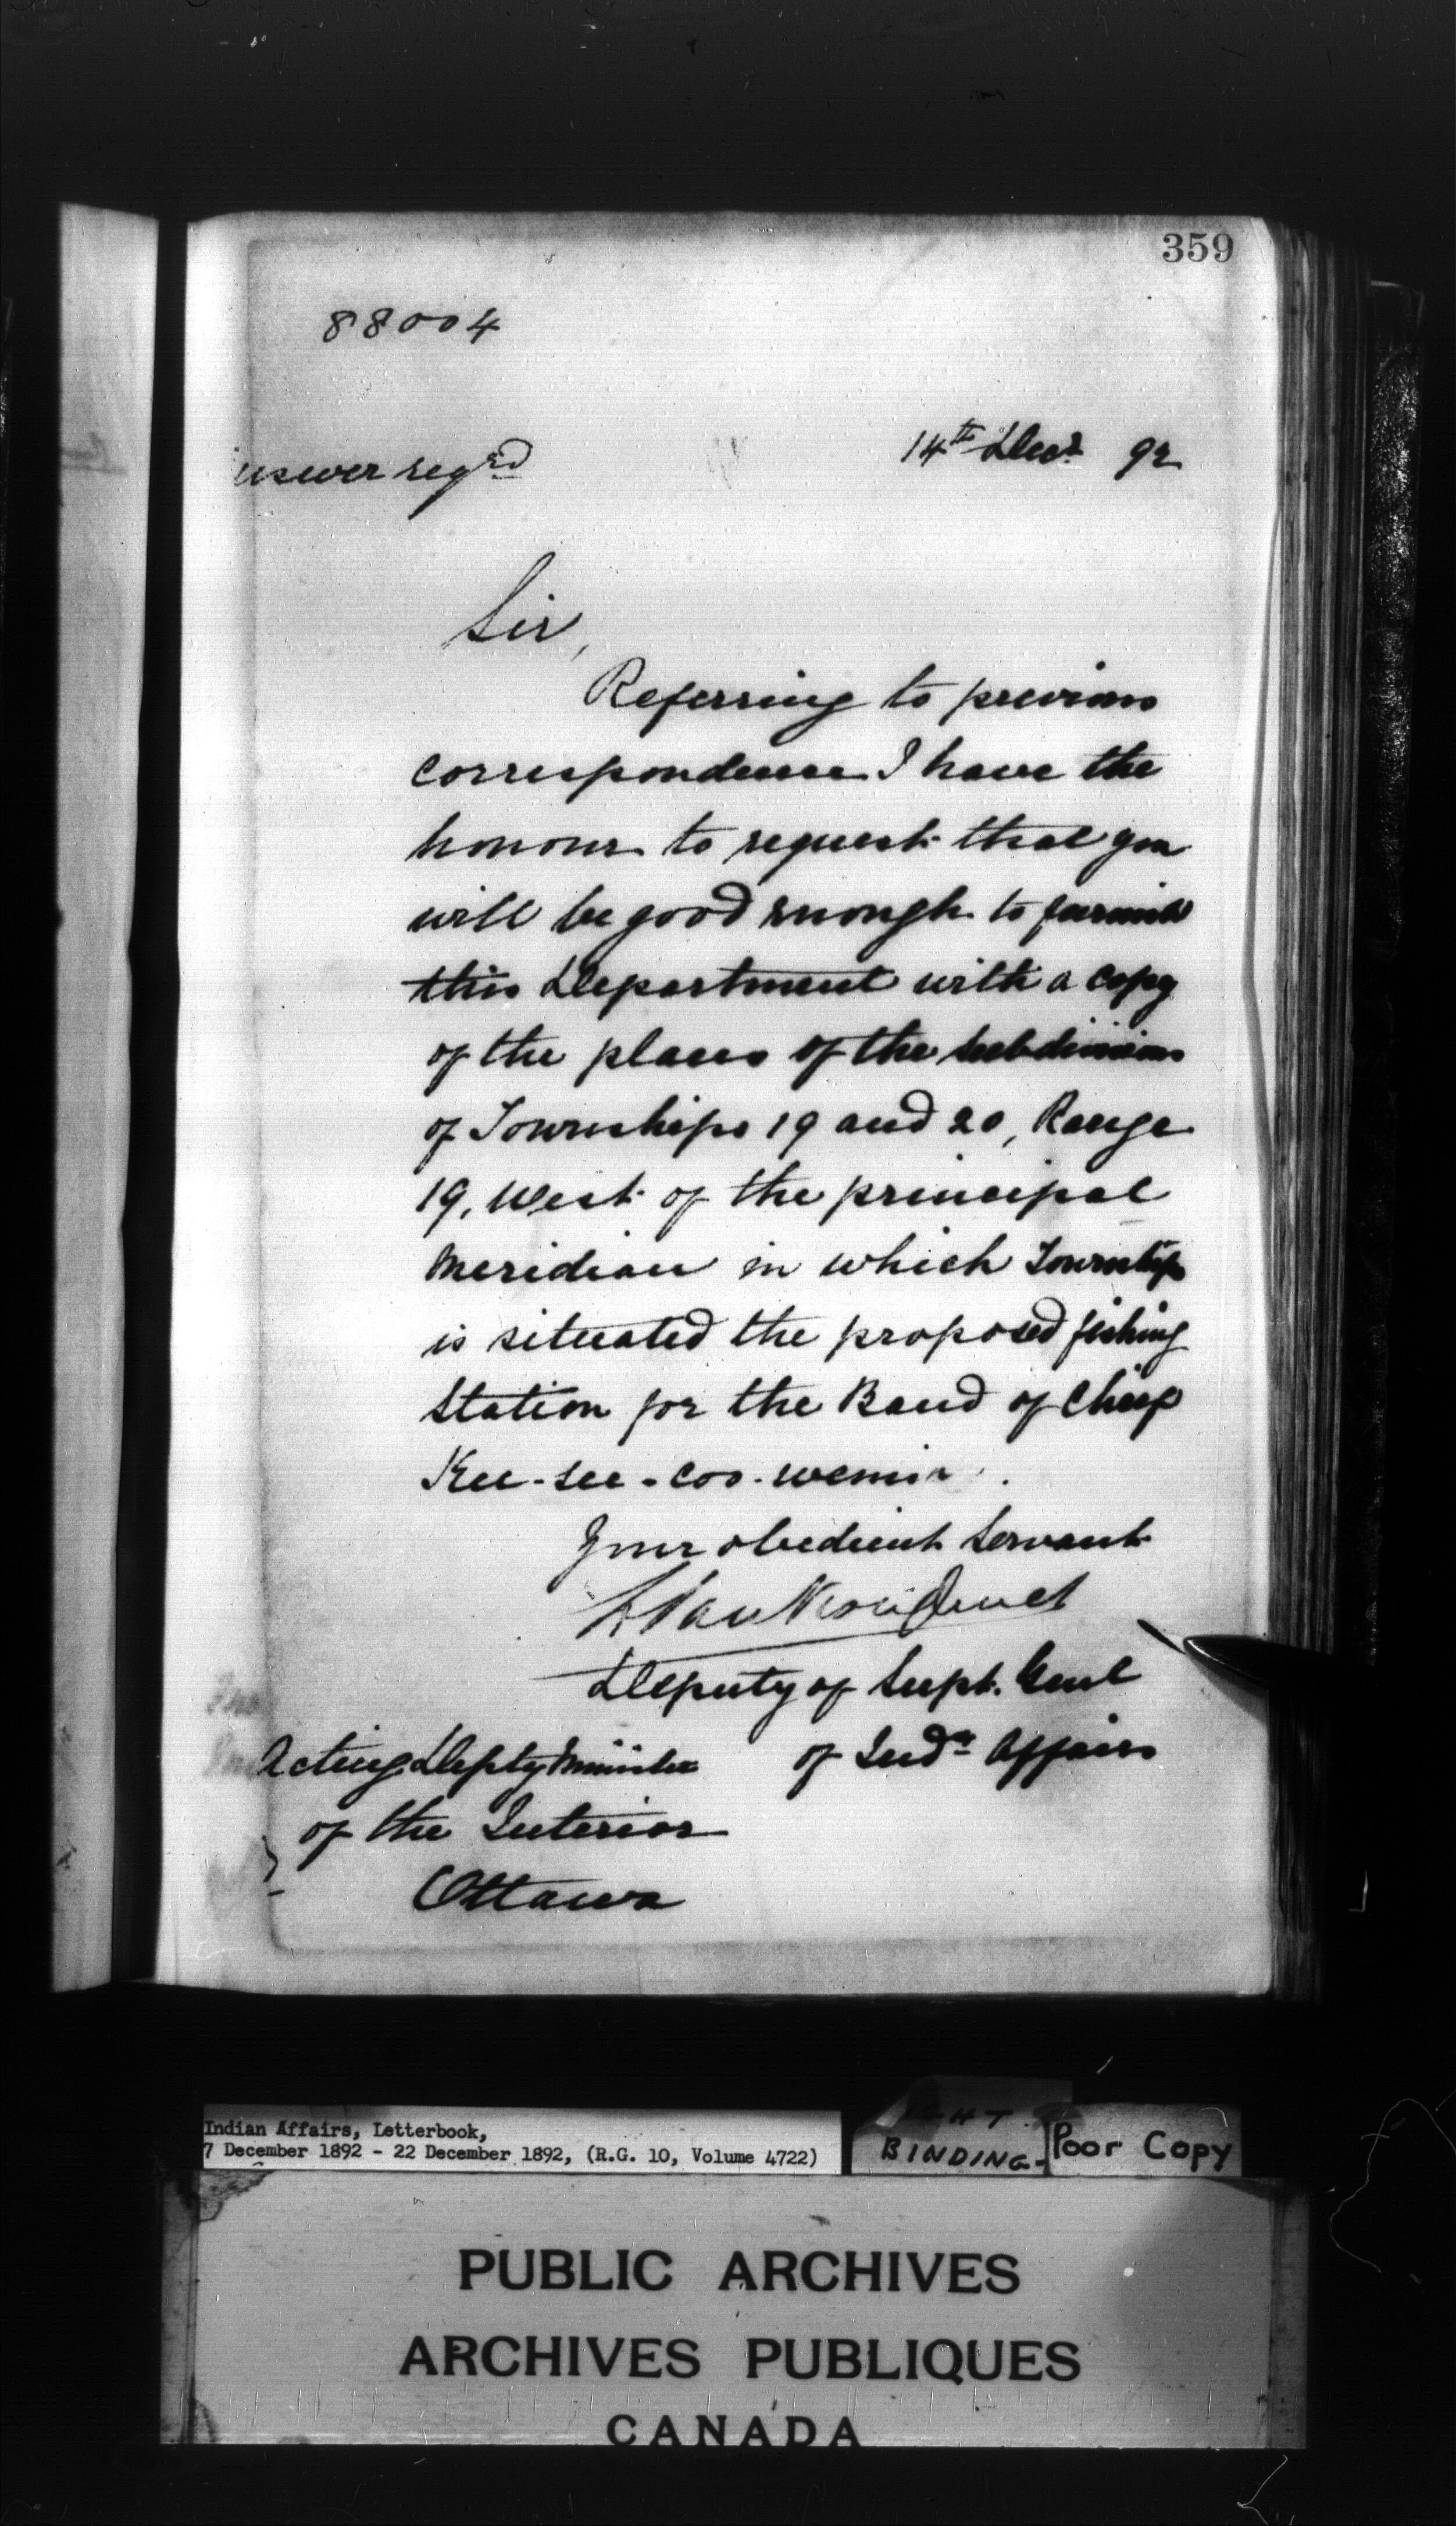 359
88004
14th Decr 92
nswer reqrd
Sir,
Referring to previous
correspondence I have the
honour to request that you
will be good enough to furnish
this Department with a copy
of the plans of the subdivisions
of Townships 19 and 20, Range
19, West of the principal
Meridian in which Townships
is situated the proposed fishing
Station for the Band of Chief
Kee-see-coo-wenin.
Your obedient Servant
L Van Koughnet
Deputy of Supt. Genl
of Indn Affairs
Acting Depty Minister
of the Interior
Ottawa
Indian Affairs, Letterbook,
7 December 1892 - 22 December 1892, (R.G. 10, Volume 4722)
BINDING-
Poor Copy
PUBLIC ARCHIVES
ARCHIVES PUBLIQUES
CANADA